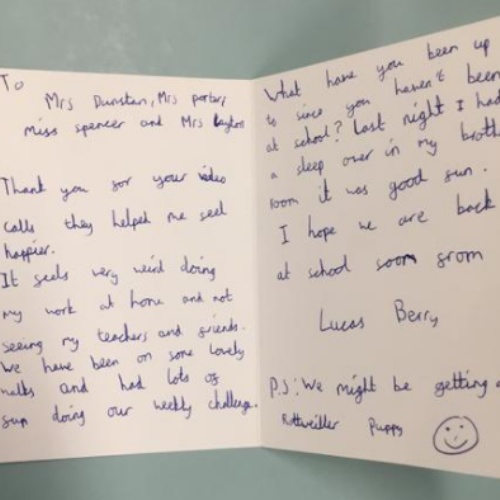 To
Mrs Dunstan, Mrs porter,
Miss spencer and Mrs Layton
Thank you for your video
calls they helped me feel
happier.
It feels very weird doing
my work at home and not
seeing my teachers and friends.
We have been on some lovely
walks and had lots of
fun doing our weekly challenge.
What have you been up
to since you haven't been
at school? Last night I had
a sleep over in my broth
room it was good fun.
I hope we are back
at school soon from
Lucas Berry
P.S: We might be getting a
Rottweiller Puppy